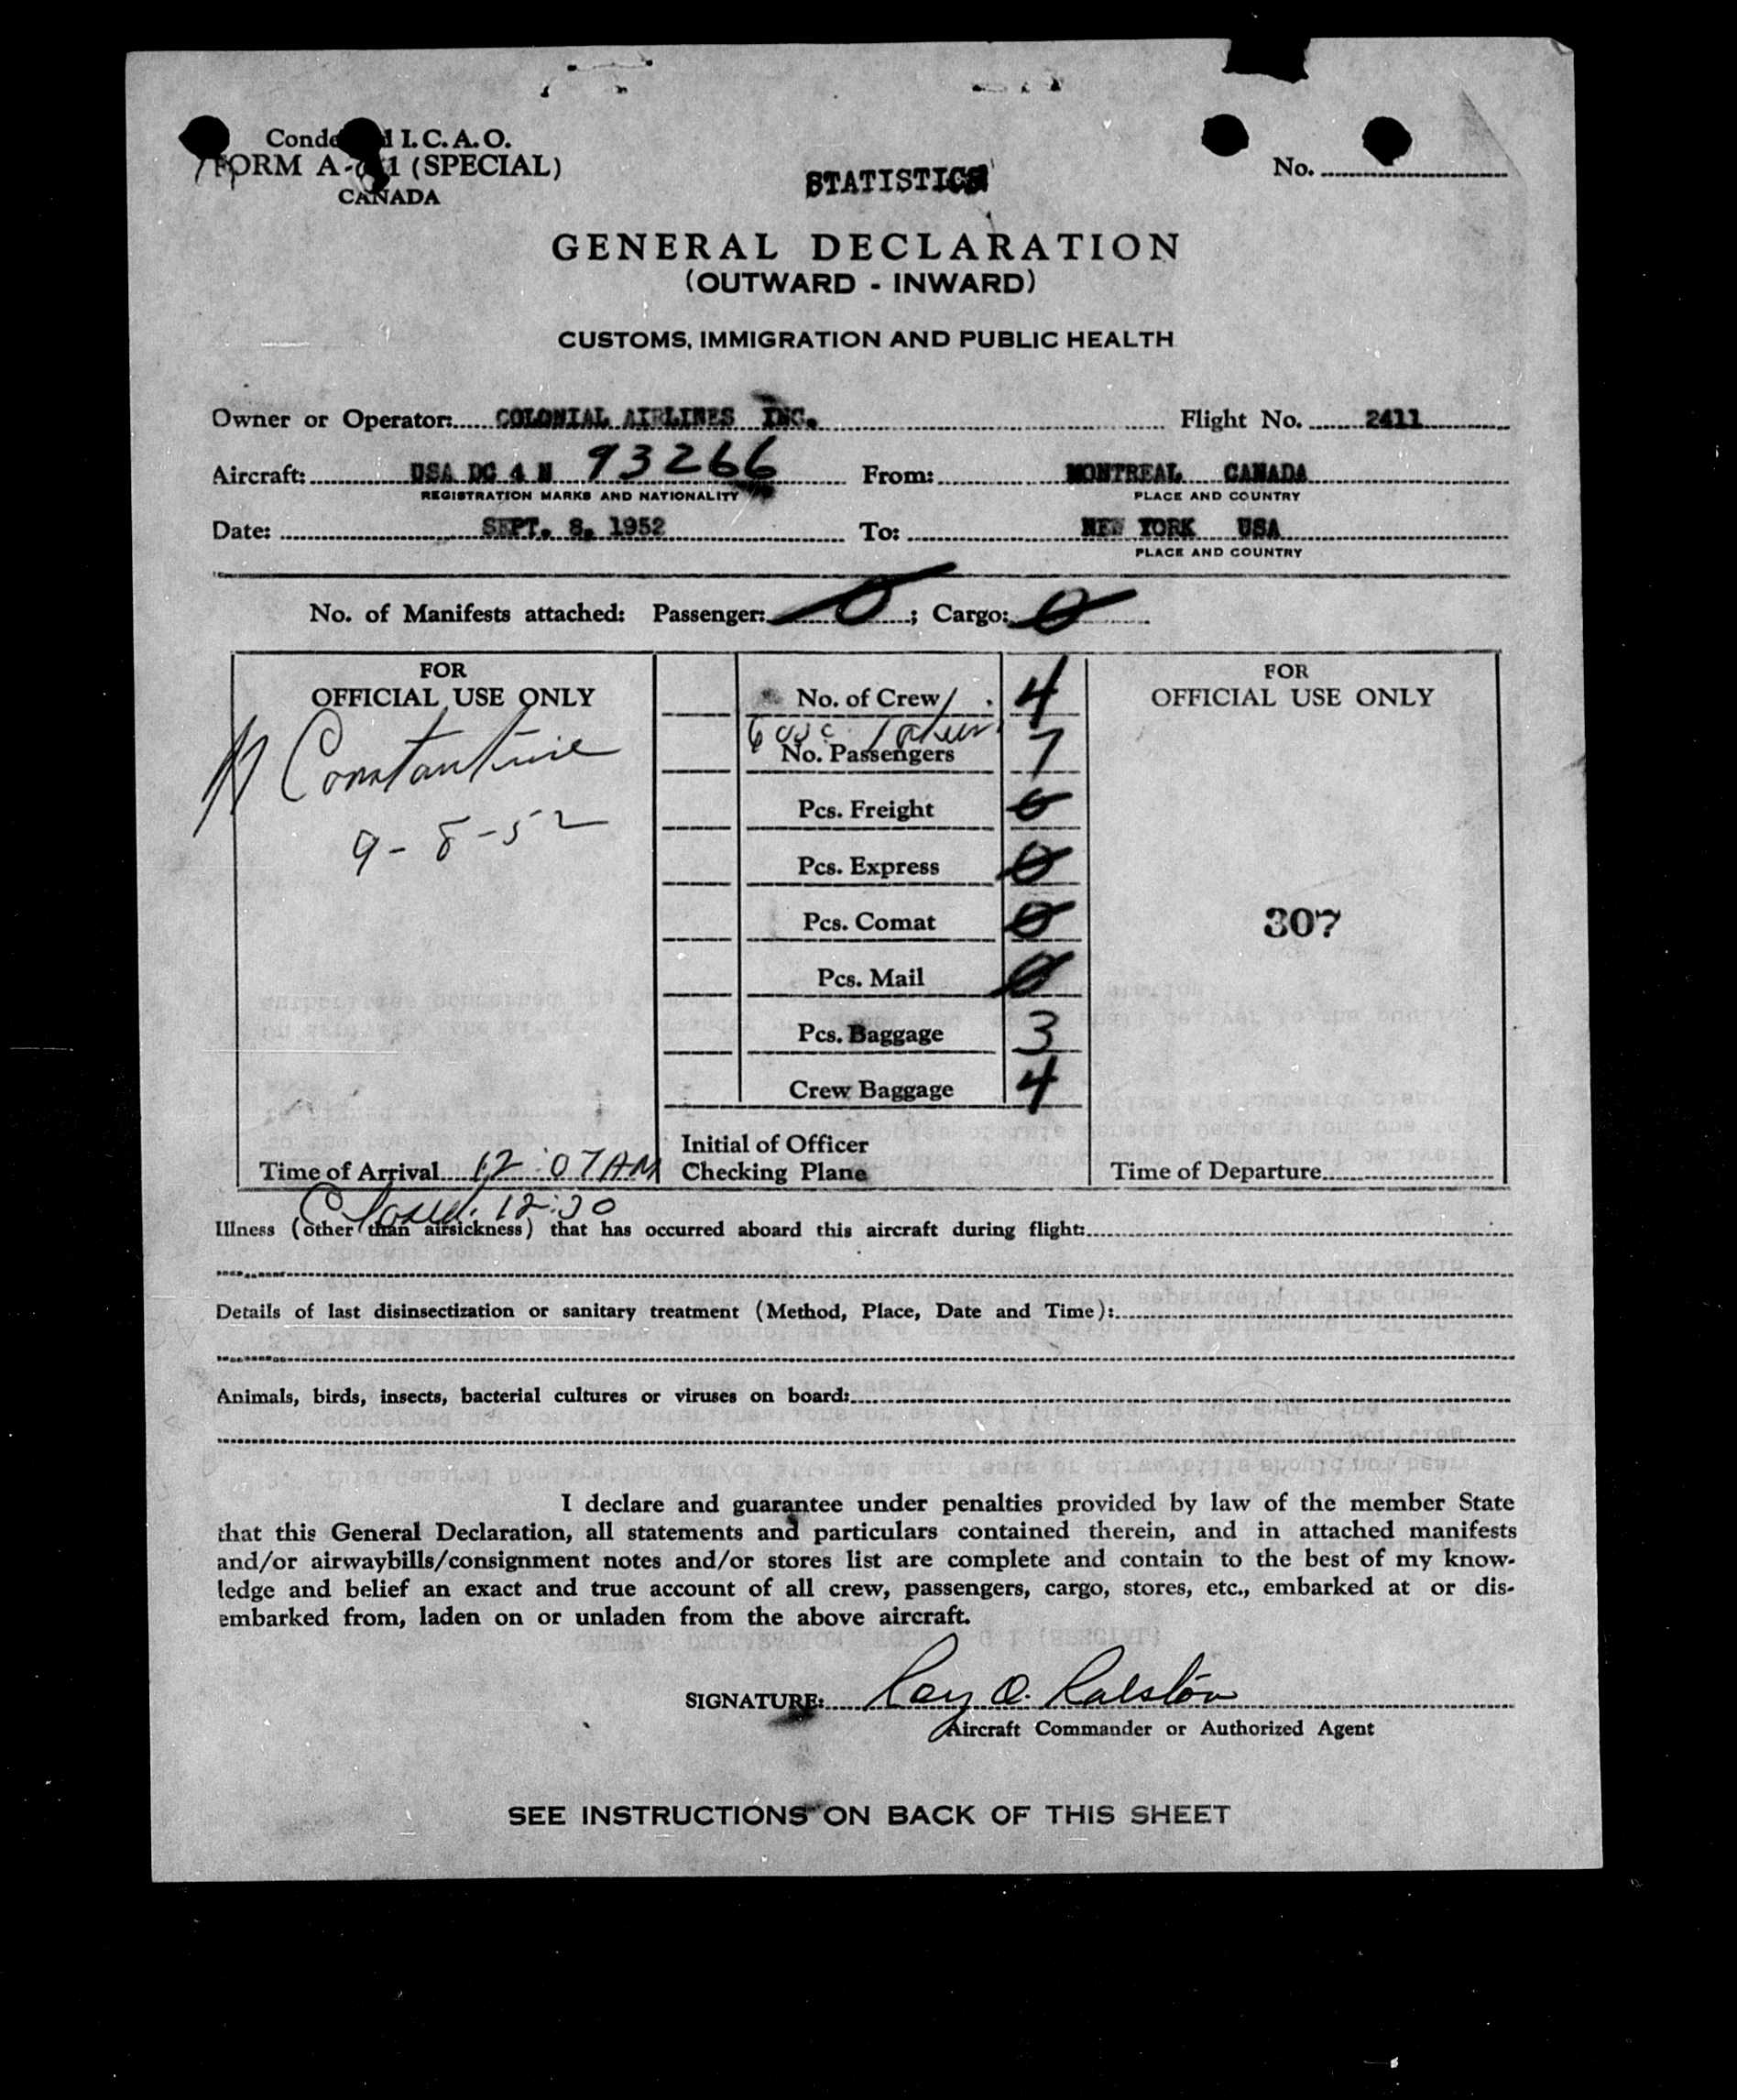 I.C.A.O.
FORM A-1 (SPECIAL)
CANADA
STATISTICS
No.
GENERAL DECLARATION
(OUTWARD - INWARD)
CUSTOMS, IMMIGRATION AND PUBLIC HEALTH
Owner or Operator: COLONIAL AIRLINES INC. Flight No. 2411
Aircraft: USA DC 4 N 93266 From: MONTREAL CANADA
REGISTRATION MARKS AND NATIONALITY PLACE AND COUNTRY
Date: SEPT. 8, 1952 To: NEW YORK USA
PLACE AND COUNTRY
No. of Manifests attached: Passenger: 0; Cargo: 0
FOR
OFFICIAL USE ONLY
Constantine
9-8-52
Time of Arrival 12:07 AM
Closed 12:30
No. of Crew 4
No. Passengers 7
Pcs. Freight 0
Pcs. Express 0
Pcs. Comat 0
Pcs. Mail 0
Pcs. Baggage 3
Crew Baggage 4
Initial of Officer
Checking Plane
FOR
OFFICIAL USE ONLY
307
Time of Departure
Illness (other than airsickness) that has occurred aboard this aircraft during flight:
Details of last disinsectization or sanitary treatment (Method, Place, Date and Time):
Animals, birds, insects, bacterial cultures or viruses on board:
I declare and guarantee under penalties provided by law of the member State
that this General Declaration, all statements and particulars contained therein, and in attached manifests
and/or airwaybills/consignment notes and/or stores list are complete and contain to the best of my know-
ledge and belief an exact and true account of all crew, passengers, cargo, stores, etc., embarked at or dis-
embarked from, laden on or unladen from the above aircraft.
SIGNATURE: Roy O. Ralston
Aircraft Commander or Authorized Agent
SEE INSTRUCTIONS ON BACK OF THIS SHEET